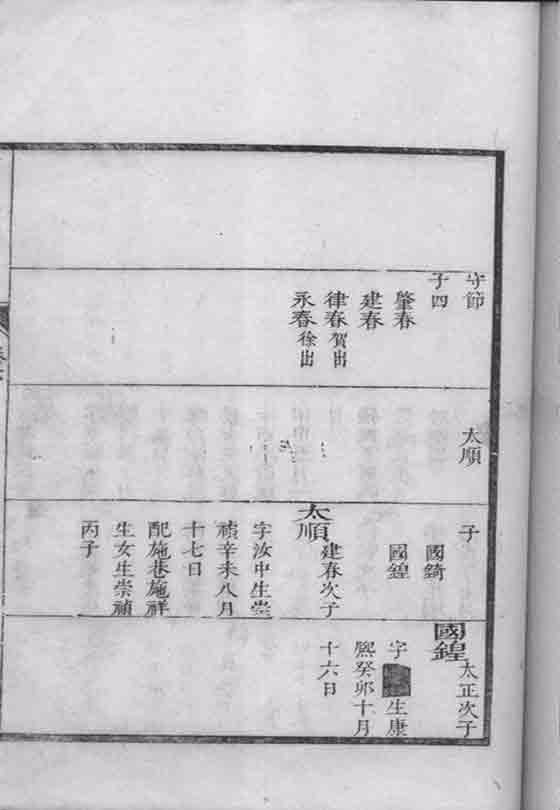 守節
子四
肇春
建春
律春賀出
永春徐出
太順
子
國錡
國鍠
太順
建春次子
字汝中生崇
禎辛未八月
十七日
配施巷施祥
生女生崇禎
丙子
國鍠
太正次子
字 生康
熙癸卯十月
十六日